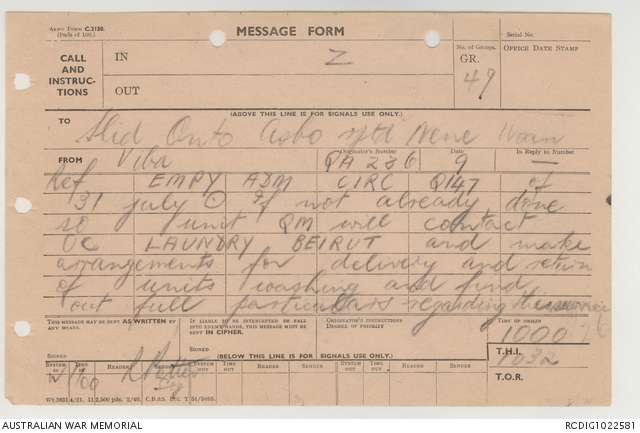 Army Form C.2128.
(Pads of 100.)
MESSAGE FORM
Serial No.
CALL
AND
INSTRUC-
TIONS
IN
Z
OUT
No. of Groups.
GR.
49
OFFICE DATE STAMP
(ABOVE THIS LINE IS FOR SIGNALS USE ONLY.)
TO
Slid Onto Asbo rptd Nene
FROM
Viba
Originator's Number
QA 286
Date
9
In Reply to Number
—
Ref EMPY ADM CIRC Q147 of
31 July ⊙ If not already done
so unit QM will contact
OC LAUNDRY BEIRUT and make
arrangements for delivery and return
of units washing and find
out full particulars regarding this service
THIS MESSAGE MAY BE SENT AS WRITTEN BY
ANY MEANS.
IF LIABLE TO BE INTERCEPTED OR FALL
INTO ENEMY HANDS, THIS MESSAGE MUST BE
SENT IN CIPHER.
ORIGINATOR'S INSTRUCTIONS
DEGREE OF PRIORITY
TIME OF ORIGIN
1000
SIGNED
SIGNED
(BELOW THIS LINE IS FOR SIGNALS USE ONLY.)
T.H.I.
1032
SYSTEM IN
TIME IN
READER
SENDER
SYSTEM OUT
TIME OUT
READER
SENDER
SYSTEM OUT
TIME OUT
READER
SENDER
T.O.R.
AUSTRALIAN WAR MEMORIAL
RCDIG1022581